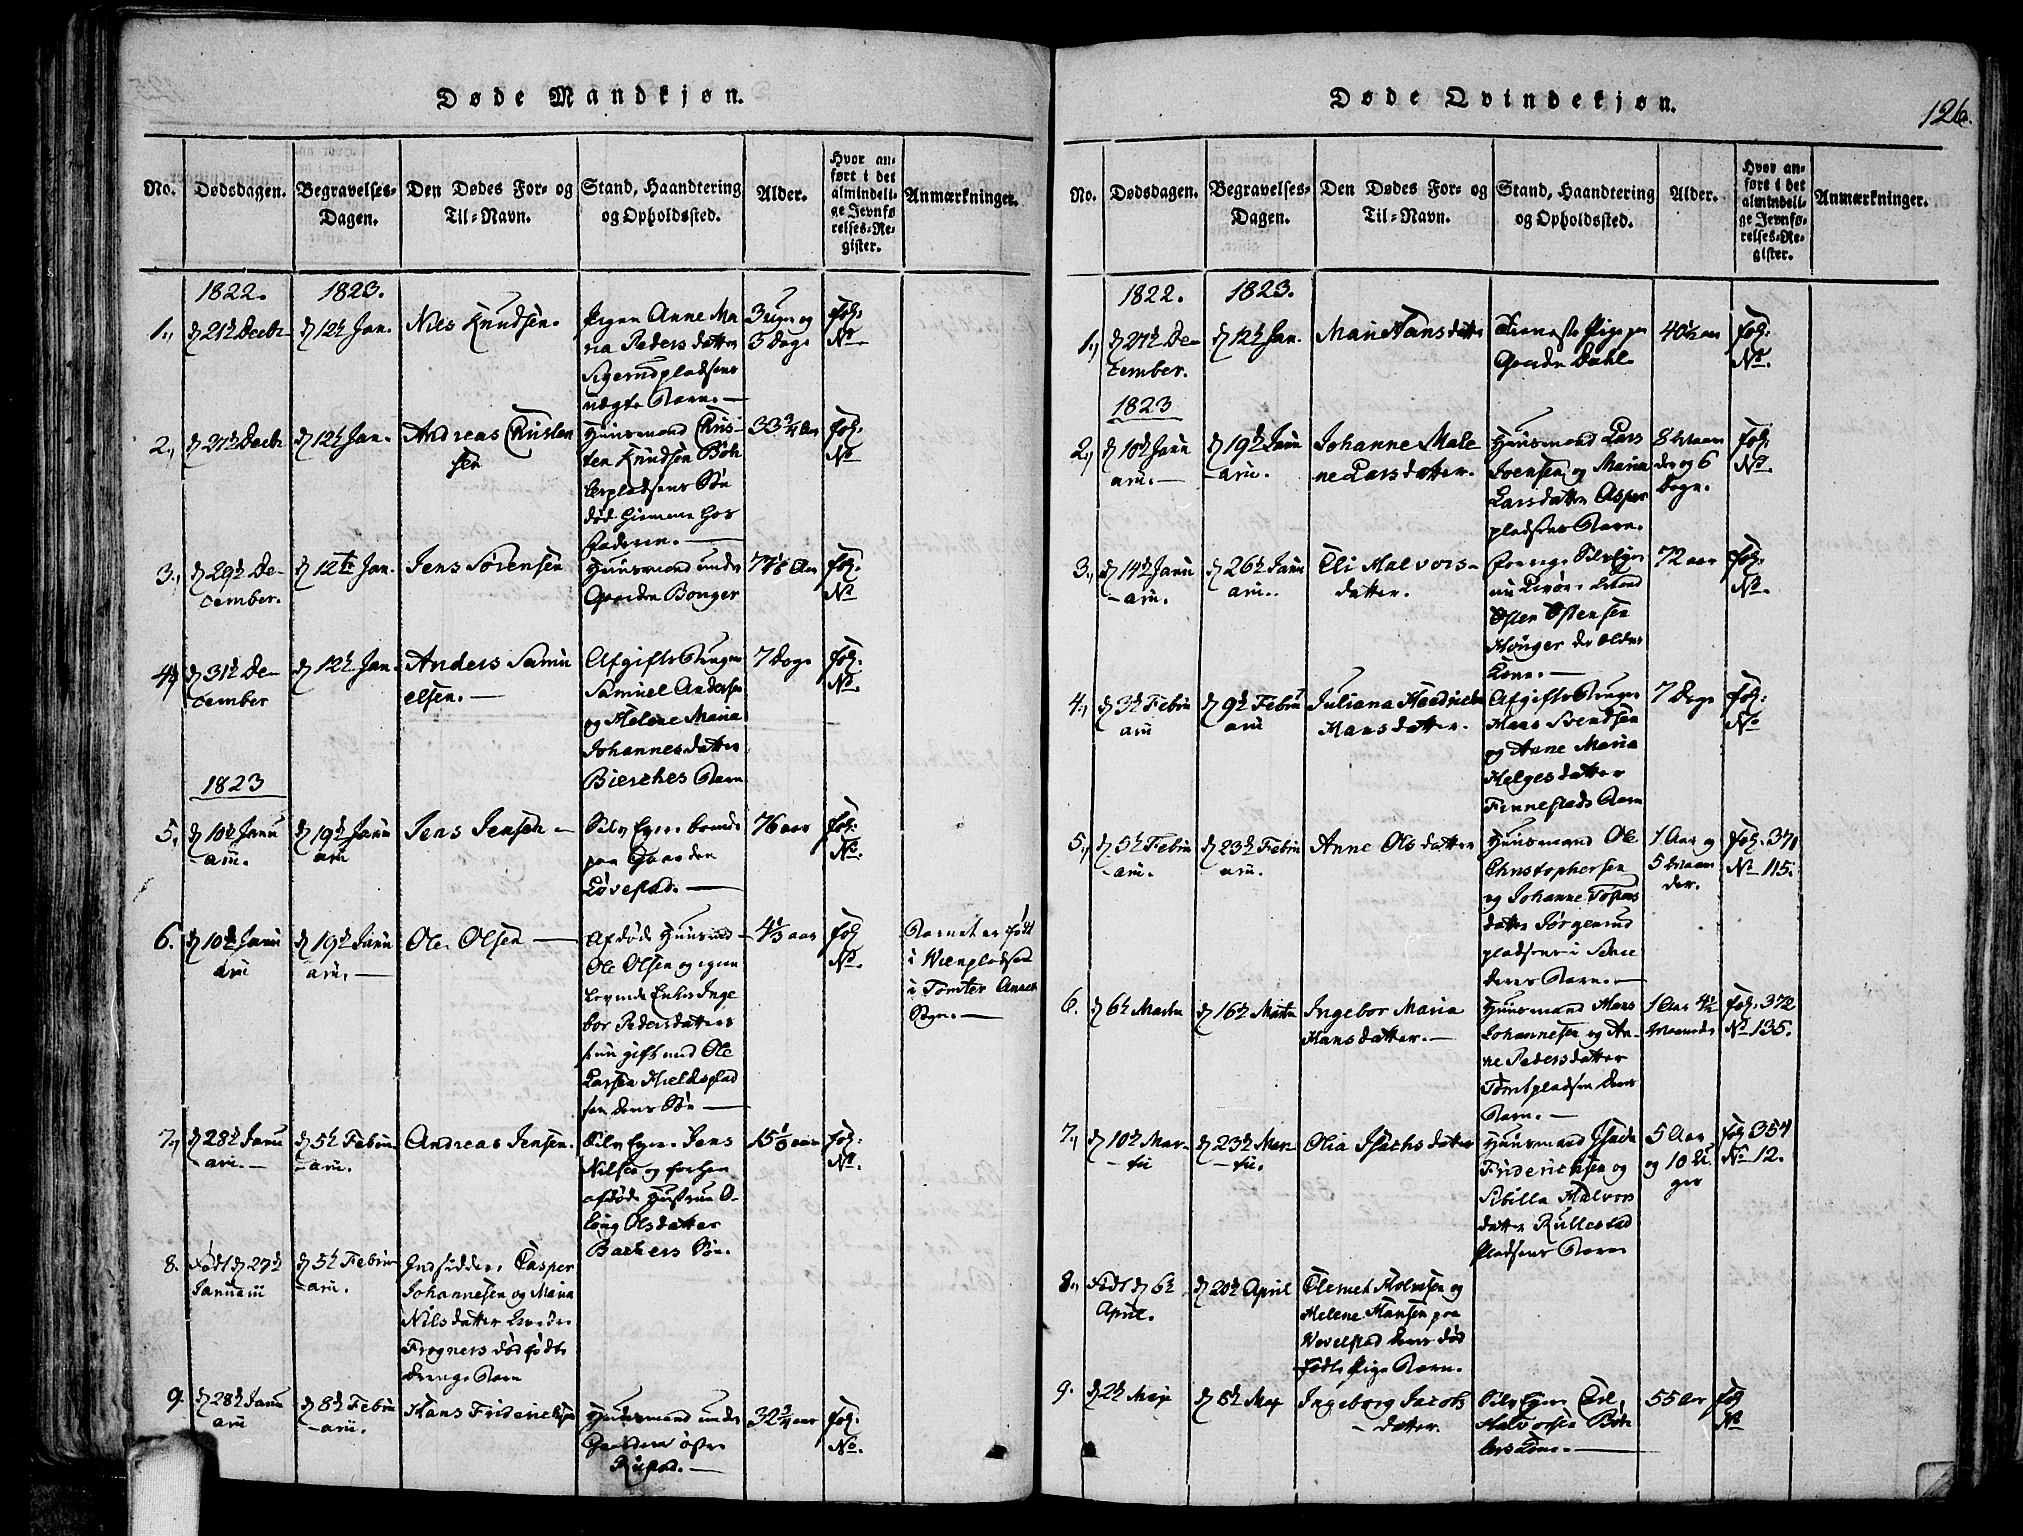 Døde Mandkjøn.
No.
Dødsdagen.
Begravelses-
Dagen.
Den Dødes For- og
Til-Navn.
Stand, Haandtering
og Opholdssted.
Alder.
Hvor an-
ført i det
almindeli-
ge Jevnfø-
relses-Re-
gister.
Anmærkninger.
1822.
1823.
1.,
21de Decbr
12te Jan.
Niels Knudsen.
Pigen Anne Ma
ria Peders datter
uægte Barn.
3 uger og
3 Dage
fol:
No.
2.,
27de Decbr
12te Jan.
Andreas Christen
sen
Huusmand Chris-
ten Knudsen Bøh
lerpladsens Søn
død hiemme hos
Faderen.
33 3/4 Aar
fol:
No
3.,
29de De-
cember.
12te Jan.
Jens Sørensen
Huusmand under
Gaarden Bonger
fol:
No
4.,
31te De-
cember
12te Jan.
Anders Samu
elsen.
Samuel Andersen
og Helene Maria
Johannesdatter
Bierches Barn
7 Dage
fol:
No.
1823
5.,
10de Janu
arii.
19de Janu
arii
Jens Jensen
Selv Eger boende
paa Gaarden
Løvestad.
76 aar
fol:
No.
6.
10de Janu
arii
19de Janu
arii.
Ole Olsen
Afdøde Huusmd
Ole Olsen og igien
Levende Enke Inge
bor Pedersdatters
nu gift med Ole
Larsen Hieldsplad
sen deres Søn
4 1/3 aar
fol
No.
Barnet er født
i Wienpladsen
i Tomter Annex
Sogn.
7.,
28de Janu
arii.
5te Febru
arii.
Andreas Jensen.
Selv Eger Jens
Nilsen og forhen
afdøde Hustrue O-
loug Olsdatter
Bachers Søn.
15 1/6 aar
fol:
No.
8.
Født d 27de
Januarii
5te Febru
arii.
Indsidder Casper
Johannesen og Maria
Nilsdatter
Frogners dødfødte
drenge Barn
9.
28de Janu
arii
8de Febru
arii.
Hans Friderichsen
Huusmand under
Gaarden østre
Riistad.
32 3/4 aar
fol:
No.
Døde Qvindekjøn.
126.
No.
Dødsdagen.
Begravelses-
Dagen.
Den Dødes For- og
Til-Navn.
Stand, Haandtering
og Opholdssted.
Alder.
Hvor an-
ført i det
almindeli-
ge Jevnfø-
relses-Re-
gister.
Anmærkninger.
1822.
1823.
1.,
27de De-
cember.
12te Jan.
Mari Hansdatter
Tieneste Pige paa
Gaarden Dahl
40 1/2 aar
fol:
No.
1823
2.,
10de Janu
arii.
19de Janu
arii.
Johanne Male
ne Larsdatter.
Huusmand Lars
Svensen og Maria
Larsdatter Asper
pladsens Barn.
8 Maan
der og 6
Dage.
fol:
No.
3.,
14de Janu
arii.
26de Janu
arii.
Eli Halvors-
datter.
Østen Østensen
Konger de ældres
Kone.
72 aar
fol:
No.
4.,
3de Febru
arii
9de Febru
arii
Juliana Hendricha
Hansdatter.
Hans Svendsen
og Anne Maria
Helgesdatter
Finnestads Barn
7 Dage
fol:
No
5.,
5te Febru
arii.
23de Febru
arii.
Anne Olsdatter
Huusmand Ole
Christophersen
og Johanne Tostens
datter Jørgenrud
pladsen i
deres Barn.
1 Aar og
5 Maan
der.
fol. 371
No 115.
6.
6te Martii
16de Martii
Ingebor Maria
Hansdatter.
Huusmand Hans
Johannesen og An-
ne Pedersdatter
Tomtpladsen deres
Barn.
1 Aar 4 1/2
Maaneder
fol. 372
No 135.
7.,
10de Mar-
tii
23de Mar-
tii.
Olia Isachsdatter
Huusmand Isach
Friderichsen og
Sibilla Halvors
datter Rullestad
Pladsens Barn
5 Aar
og 10 U
ger
fol 357
No 12.
8.,
Født d 6te
April.
20de April
Clemet Holmsen og
Helene Hansen paa
Wevelstad deres død
fødte Pige Barn.
9.
2de Maji
8de Maji
Ingeborg Jacobs
datter.
Selv Eger
Halvorsen Bøh
lers Kone.
55 Aar
fol
No